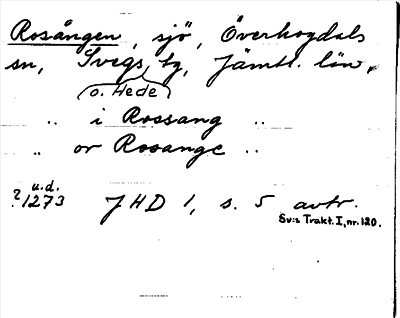 Rosången, sjö, Överhogdals
sn, Svegs tg, Jämtl. län,
o. Hede
.. i Rossang ..
.. or Rosange ..
u.d.
?1273 JHD 1, s. 5 avtr.
Sv:s Trakt. I, nr. 120.